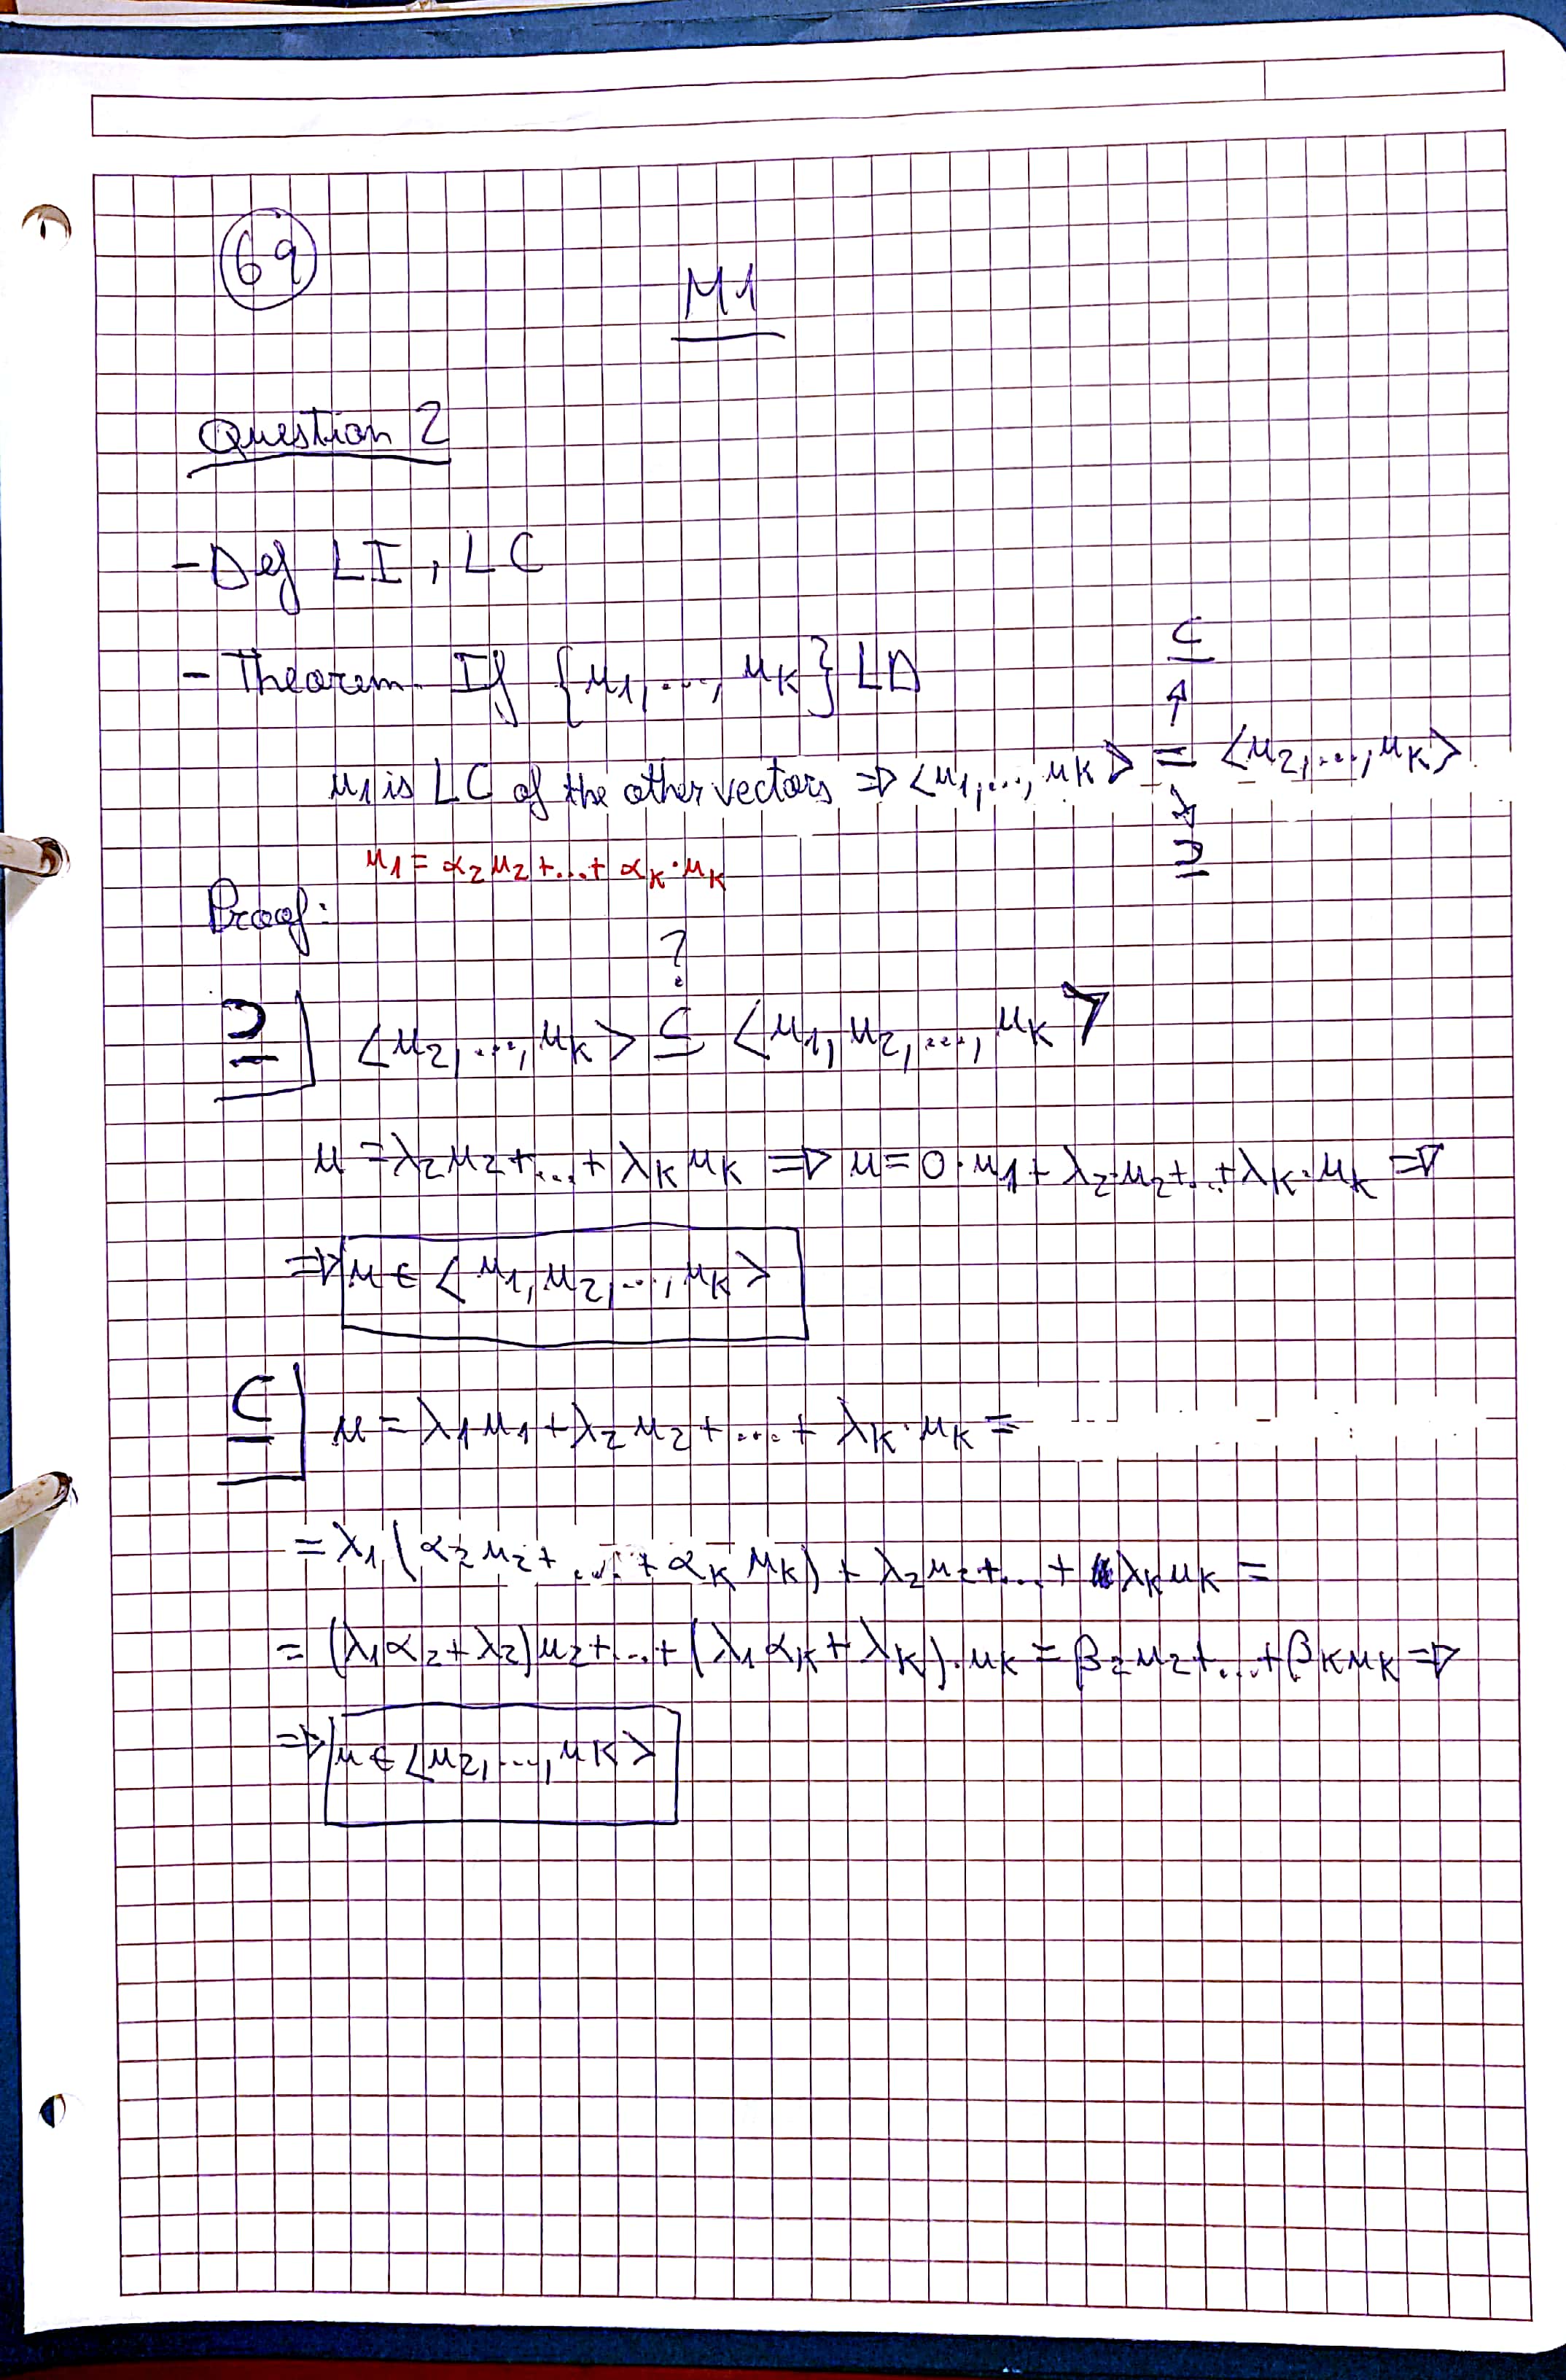 69
M1
Question 2
- Def LI, LC
- Theorem. If {u1, ..., uK} LD
⊆
↑
u1 is LC of the other vectors => <u1, ..., uK> = <u2, ..., uK>
↓
⊇
u1 = α2u2 + ... + αK·uK
Proof:
?
⊇] <u2, ..., uK> ⊆ <u1, u2, ..., uK>
u = λ2u2 + ... + λKuK => u = 0·u1 + λ2·u2 + ... + λK·uK =>
=> u ∈ <u1, u2, ..., uK>
⊆] u = λ1u1 + λ2u2 + ... + λK·uK =
= λ1(α2u2 + ... + αKuK) + λ2u2 + ... + λKuK =
= (λ1α2 + λ2)u2 + ... + (λ1αK + λK)·uK = β2u2 + ... + βKuK =>
=> u ∈ <u2, ..., uK>